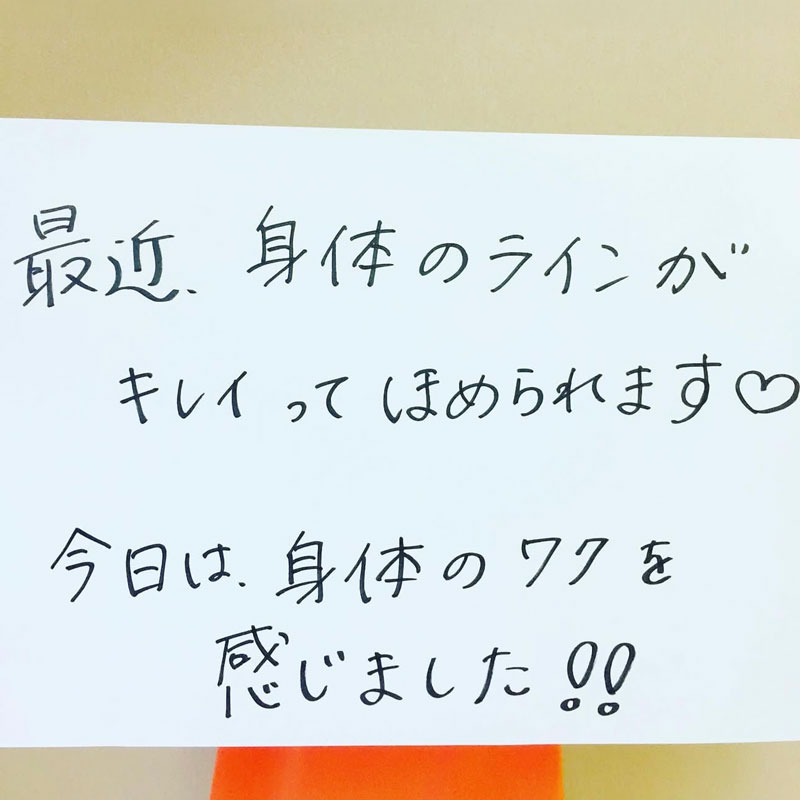 最近、身体のラインが
キレイってほめられます♡
今日は、身体のワクを
感じました!!